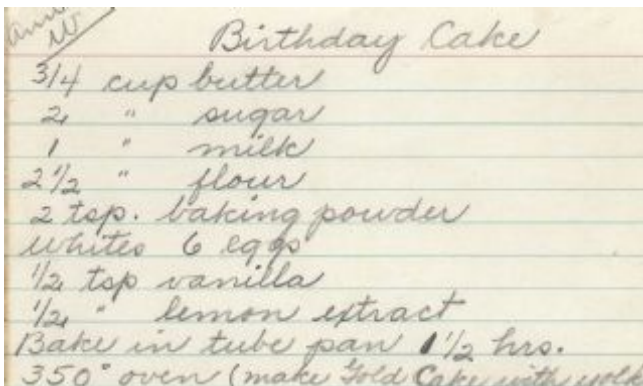 Anna
W
Birthday Cake
3/4 cup butter
2 " sugar
1 " milk
2 1/2 " flour
2 tsp. baking powder
whites 6 eggs
1/2 tsp vanilla
1/2 " lemon extract
Bake in tube pan 1 1/2 hrs.
350° oven (make Gold Cake with yol